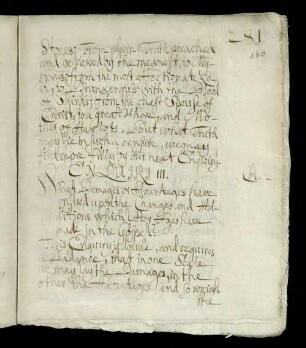 281
160
Stones; From plain Truth preached
and professed by the meanest to
from the most affectionate
with the Blood
of Saints; from the chast Spouse of
Christ, to a great Whore, and Mo-
ther of Harlots. But what Truth
may be in such a censure, we may
more fully by our next Enquiry.
ENQUIRY III.
What Damages or Advantages have
ensued upon the Changes and
which later Ages have
made in the Gospel?
This Enquiry is double, and requires
a Ballance; that in one Scale
we may lay the Damages, in the
other the Advantages; and so weigh
the